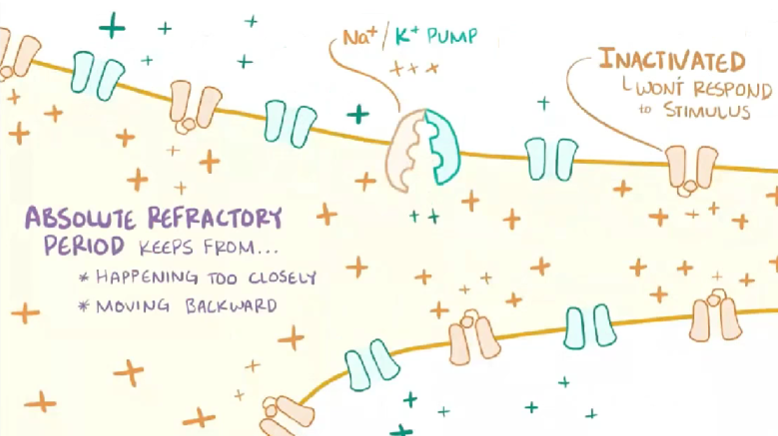 Na+/K+ PUMP
+++
INACTIVATED
WON'T RESPOND
to STIMULUS
ABSOLUTE REFRACTORY
PERIOD KEEPS FROM...
* HAPPENING TOO CLOSELY
* MOVING BACKWARD